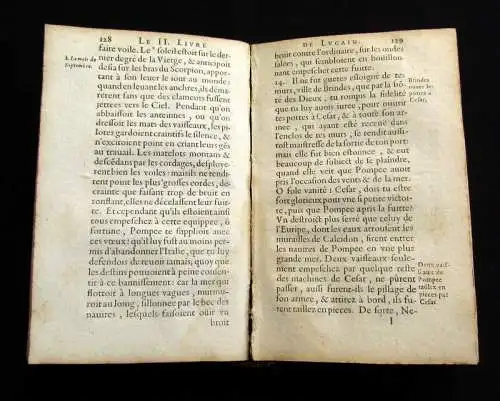 128 LE II. LIVRE
1. Le mois de
Septembre.
faire voile. Le ¹ soleil estoit sur le der-
nier degré de la Vierge, & anticipoit
desia sur les bras du Scorpion, appor-
tant à son leuer le iour au monde:
quand en leuant les anchres, ils déma-
rerent sans que des clameurs fussent
jettees vers le Ciel. Pendant qu'on
abbaissoit les antennes, ou qu'on
dressoit les mats des vaisseaux, les pi-
lottes gardoient craintifs le silence, &
n'excitoient point en criant leurs gés
au trauail. Les matelots montans &
descédans par les cordages, desploye-
rent bien les voiles: mais ils ne tendi-
rent point les plus grosses cordes, de
crainte que faisant trop de bruit en
ronflant, elles ne decelassent leur fui-
te. Et cependant qu'ils estoient ainsi
tous empeschez à cette equipper, ô
fortune, Pompee te supplie auec
ces vœux: qu'il luy fust au moins per-
mis d'abandonner l'Italie, que tu luy
defendois de reuoir iamais; quoy que
les destins pouuoient à peine consen-
tir à ce bannissement: car la mer qui
flottoit à longues vagues, murmu-
roit au long, sillonnee par le bec des
nauires, lesquels faisoient ouïr vn
broit
DE LVCAIN. 129
bruit contre l'ordinaire, sur les ondes
halenes, qui sembloient en bouillon-
nant empescher cette fuitte.
14. Il ne fut gueres esloigné de tes
murs, ville de Brindes, que par la bó-
té des Dieux, tu rompis la fidelité
que tu luy auois iuree, pour ouurir
tes portes à Cesar, & à toute son ar-
mee, qui ayant esté receuë dans
l'enclos de tes murs, se rendit aussi
maistresse de la sortie de ton port:
mais elle fut bien estonnee, & eut
beaucoup de subiect de se plaindre,
quand elle veit que Pompee auoit
pris l'occasion des vents & de la mer.
O fole vanité! Cesar, dois tu estre
fort glorieux pour vne si petite victoi-
re, puis que Pompee apres la fuitte?
Vn destroit plus serré que celuy de
l'Europe, dont les eaux arrousent les
murailles de Caleidun, firent entrer
les nauires de Pompee en vne plus
grande mer. Deux vaisseaux seule-
ment empeschez par quelque reste
des machines de Cesar, ne pûrent
passer, aussi furent-ils le pillage de
son armee, & attirez à bord, ils fu-
rent taillez en pieces. De sorte, Ne-
I
Brindes
ouure les
portes à
Cesar.
Deux vais-
seaux de
Pompee
taillez en
pieces par
Cesar.